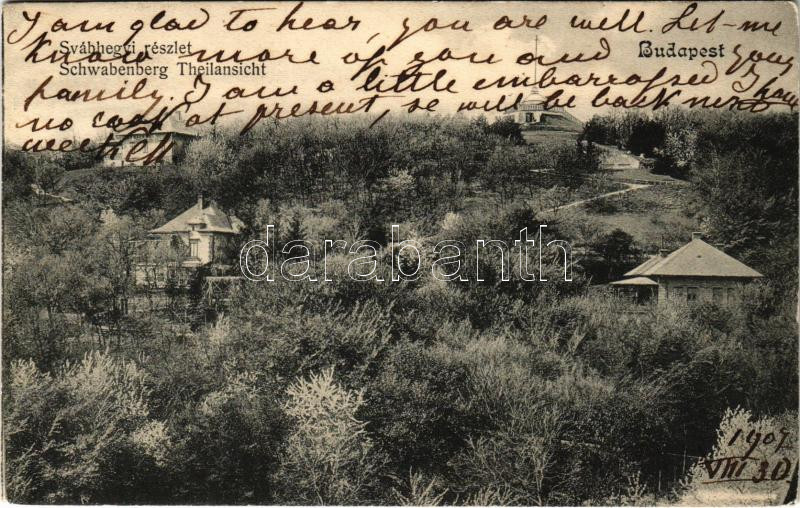 I am glad to hear, you are well. Let-me
Svábhegyi részlet
Budapest
know more of you and your
Schwabenberg Theilansicht
family. I am a little embarrossed, I have
no cook at present, se will be back next
week!!!
darabanth
1907
VIII 30